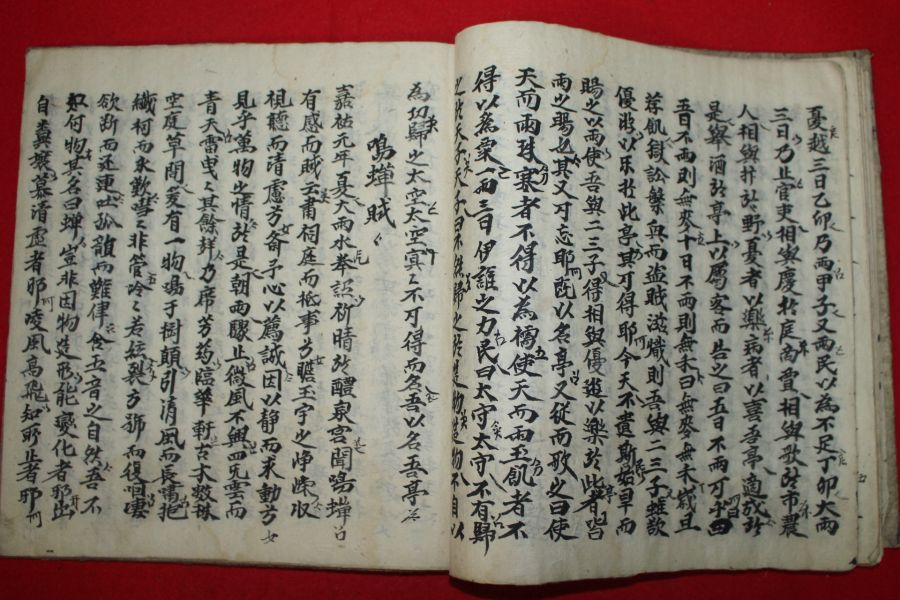 憂越三日乙卯乃雨甲子又雨民以為不足丁卯大雨
三日乃止官吏相與慶於庭商賈相與歌於市農
人相與抃於野憂者以樂病者以喜吾亭適成於
是舉酒於亭上以屬客而告之曰五日不雨可乎曰
吾日不雨則無麥十日不雨則無禾曰無麥無禾歲且
荐飢獄訟繁興而盜賊滋熾則吾與二三子雖欲
優游以樂於此亭其可得耶今天不遺斯始旱而
賜之以雨使吾與二三子得相與優遊以樂於此者皆
雨之賜也其又可忘耶既以名亭又從而歌之曰使
天而雨珠寒者不得以為襦使天而雨玉飢者不
得以為粟一雨三日伊誰之力民曰太守太守不有歸
之於天子天子曰不然歸之於造物造物不自以
為功歸之太空太空冥〻不可得而名吾以名吾亭
鳴蟬賦
嘉祐元年夏大雨水奉詔祈晴於醴泉宮聞鳴蟬
有感而賦云肅祠庭而祗事兮瞻玉宇之崢嶸收
視聽而清慮兮齋予心以薦誠因以靜而求動兮
見乎萬物之情於是朝雨驟止微風不興四無雲而
青天雷曳〻其餘聲乃席芳葯臨華軒古木數株
空庭草間爰有一物鳴于樹顛引清風而長嘯抱
纖柯而永歎嘒〻非管泠〻若絃裂方號而復咽凄
欲斷而還連吐孤韻而難律含五音之自然吾不
知何物其名曰蟬豈非因物造形能變化者邪出
自糞壤慕清虛者耶凌風高飛知所止者耶